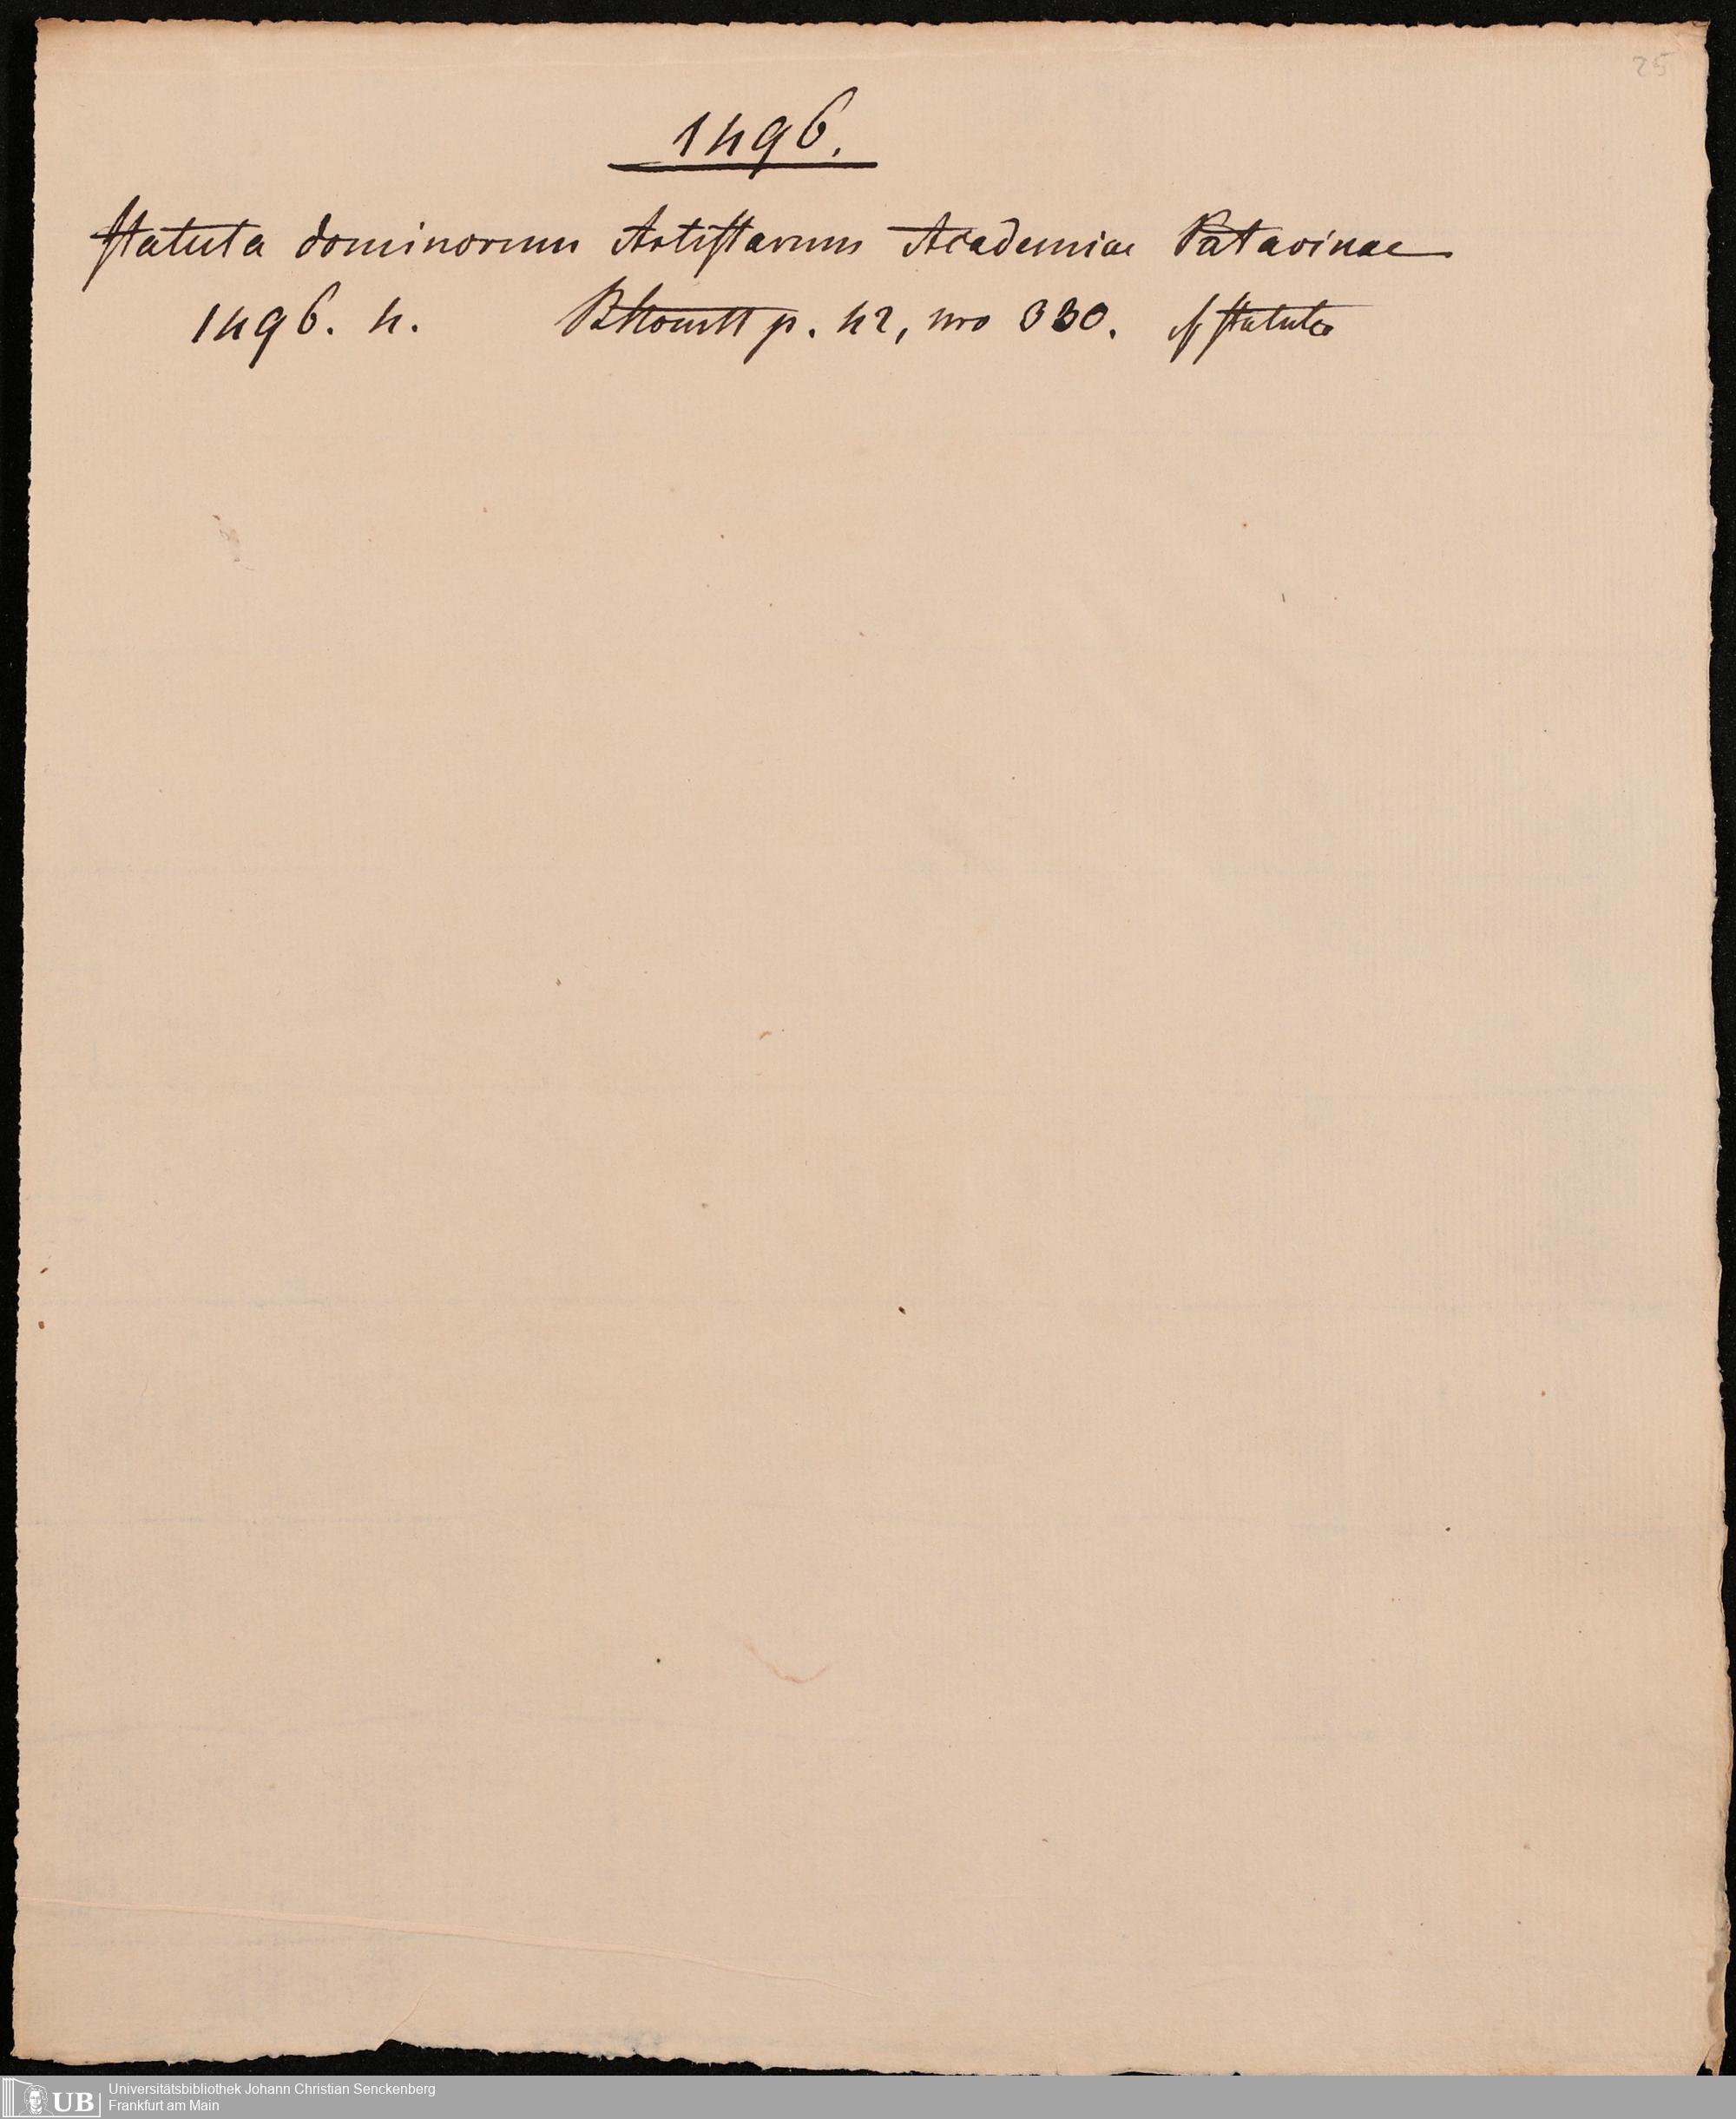 25
1496.
Statuta dominorum Artistarum Academiae Patavinae
1496. 4. p. 42, nro 330. cf Statuta
UB Universitätsbibliothek Johann Christian Senckenberg
Frankfurt am Main